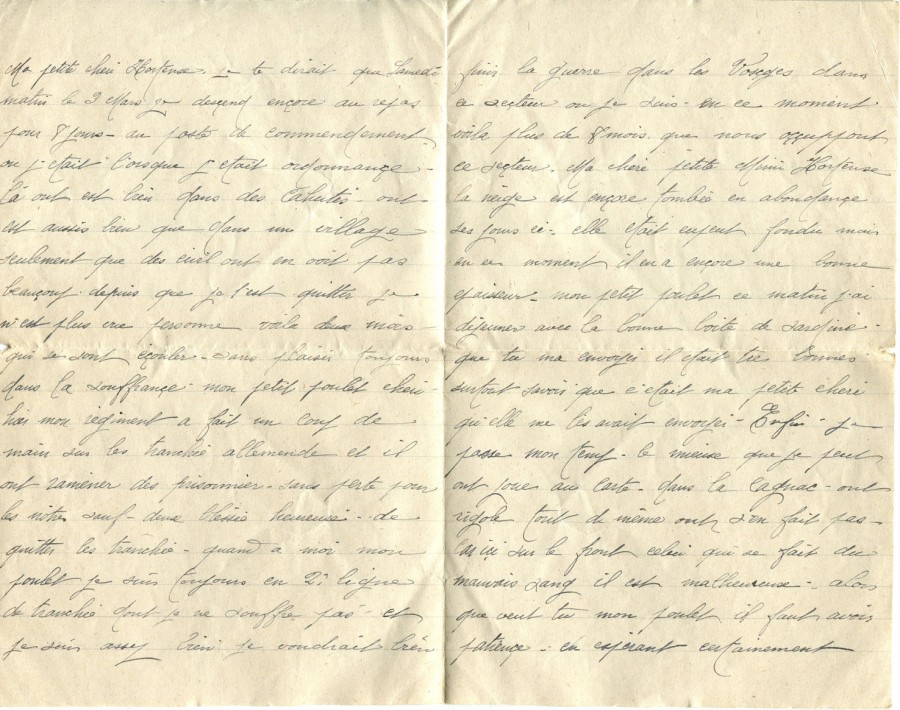 Ma petite cheri Hortense. je te dirait que Samedi
matin le 2 Mars je descend encore au repas
pour 8 jours - au poste de commendement
ou j'etait l'orsque j'etait ordonnance -
La ont est bien dans des Cahutes - ont
est aussis bien que dans une village
seulement que des civil ont en voit pas
beaucoup. depuis que je t'est quitter je
n'est plus vue personne voila deux mois -
qui se sont écouler - sans plaisir toujours
dans la souffrance. mon petit poulet cheri
hier mon regiment a fait un coup de
main sur les tranchée allemende et il
ont ramener des prisonnier - sans perte pour
les notre sauf - deux blessée heureuse - de
quitter les tranchée - quand a moi mon
poulet je suis toujours en 2e ligne
de tranchée dont je ne souffre pas - et
je suis assez bien je voudrait bien
finir la guerre dans les Vosges dans
ce secteur ou je suis - en ce moment
voila plus de 8 mois. que nous occuppont
ce secteur. Ma chere petite Mimi Hortense
la neige est encore tombée en abondance
ses jours ci - elle etait fondu mais
en ce moment il en a encore une bonne
epaiseur - mon petit poulet ce matin j'ai
dejeuner avec la bonne boite de sardine -
que tu ma envoyer il etait tre bonnes
surtout savoir que c'etait ma petite cheri
qu'elle me les avait envoyer - Enfin - je
passe mon temp - le mieuse que je peut
ont joue au carte - dans la cagnac - ont
rigole tout de même ont s'en fait pas -
car ici sur le front celui qui se fait du
mauvais sang il est malheureuse - alors
que veut tu mon poulet il faut avoir
patience - en espérant certainement